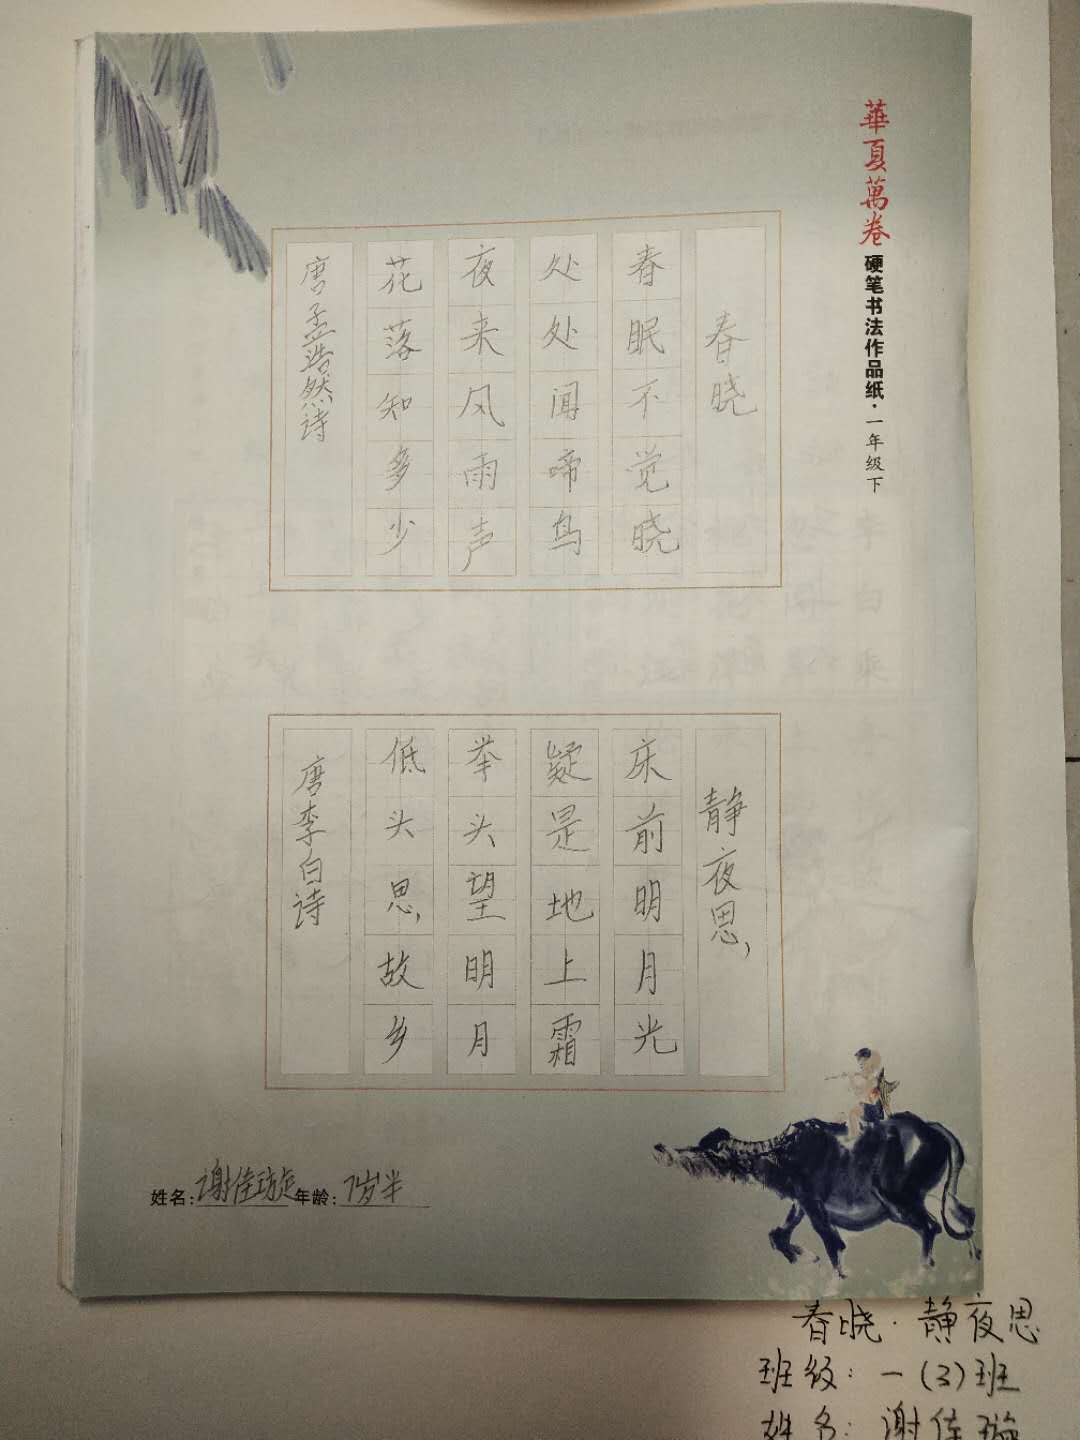 華夏萬卷 硬笔书法作品纸·一年级下
春晓
春眠不觉晓
处处闻啼鸟
夜来风雨声
花落知多少
唐孟浩然诗
静夜思
床前明月光
疑是地上霜
举头望明月
低头思故乡
唐李白诗
姓名:谢佳璇 年龄:7岁半
春晓·静夜思
班级:一(3)班
姓名:谢佳璇